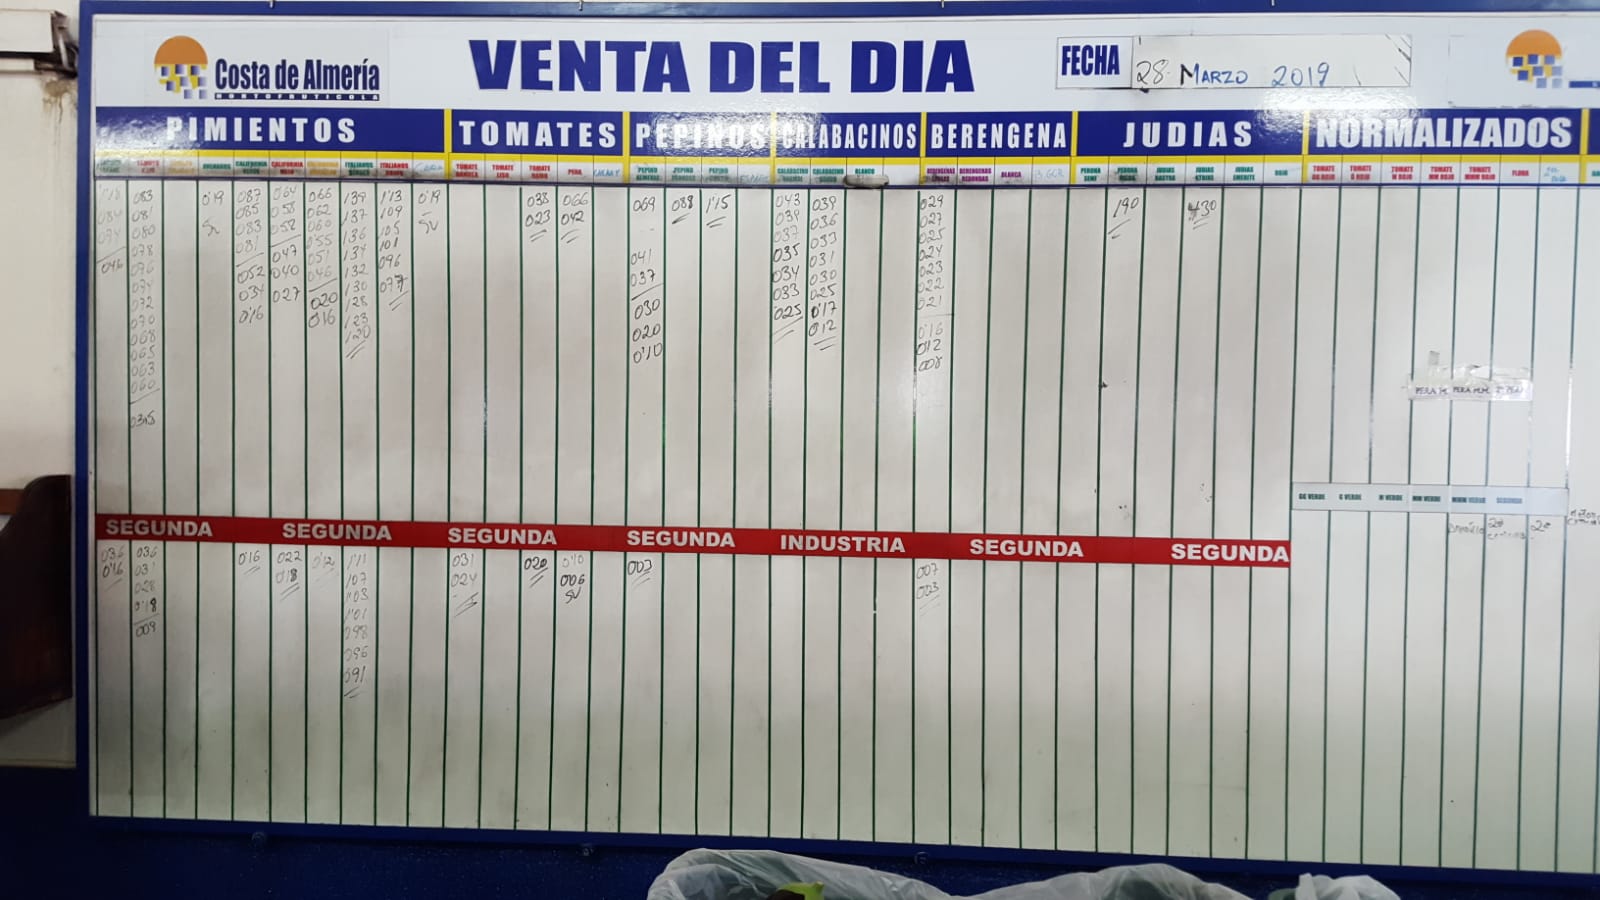 Costa de Almería
HORTOFRUTICOLA
VENTA DEL DIA
FECHA
28 MARZO 2019
PIMIENTOS
TOMATES
PEPINOS
CALABACINOS
BERENGENA
JUDIAS
NORMALIZADOS
CALIFORNIA VERDE
CALIFORNIA ROJO
ITALIANOS VERDES
ITALIANOS ROJOS
TOMATE DANIELA
TOMATE LISO
TOMATE RAMO
PERA
PEPINO ALMERIA
PEPINO FRANCES
PEPINO CORTO
CALABACINO FINO
CALABACINO GORDO
BLANCO
BERENGENAS LARGAS
BERENGENAS REDONDAS
BLANCA
PERONA SEMI
PERONA ROJA
JUDIAS RASTRA
JUDIAS STRIKE
JUDIAS EMERITE
ROJO
TOMATE GG ROJO
TOMATE G ROJO
TOMATE M ROJO
TOMATE MM ROJO
TOMATE MMM ROJO
FLORA
083
081
080
078
076
074
072
070
068
065
063
060
0345
084
074
046
0'19
SV
087
085
083
081
052
034
0'16
064
058
052
047
040
027
066
062
060
055
051
046
020
016
139
137
136
134
132
130
128
123
120
1'13
109
105
101
096
077
0'19
SV
038
023
066
042
069
041
037
030
020
0'10
088
1'15
043
039
037
035
034
033
025
039
036
033
031
030
025
0'17
012
029
027
025
024
023
022
021
0'16
012
008
190
430
GG VERDE
G VERDE
M VERDE
MM VERDE
MMM VERDE
SEGUNDA
SEGUNDA
SEGUNDA
SEGUNDA
SEGUNDA
INDUSTRIA
SEGUNDA
SEGUNDA
036
0'16
036
031
028
0'18
009
0'16
022
018
0'12
1'11
107
1'03
1'01
098
096
091
031
024
020
0'10
006
SV
003
007
003